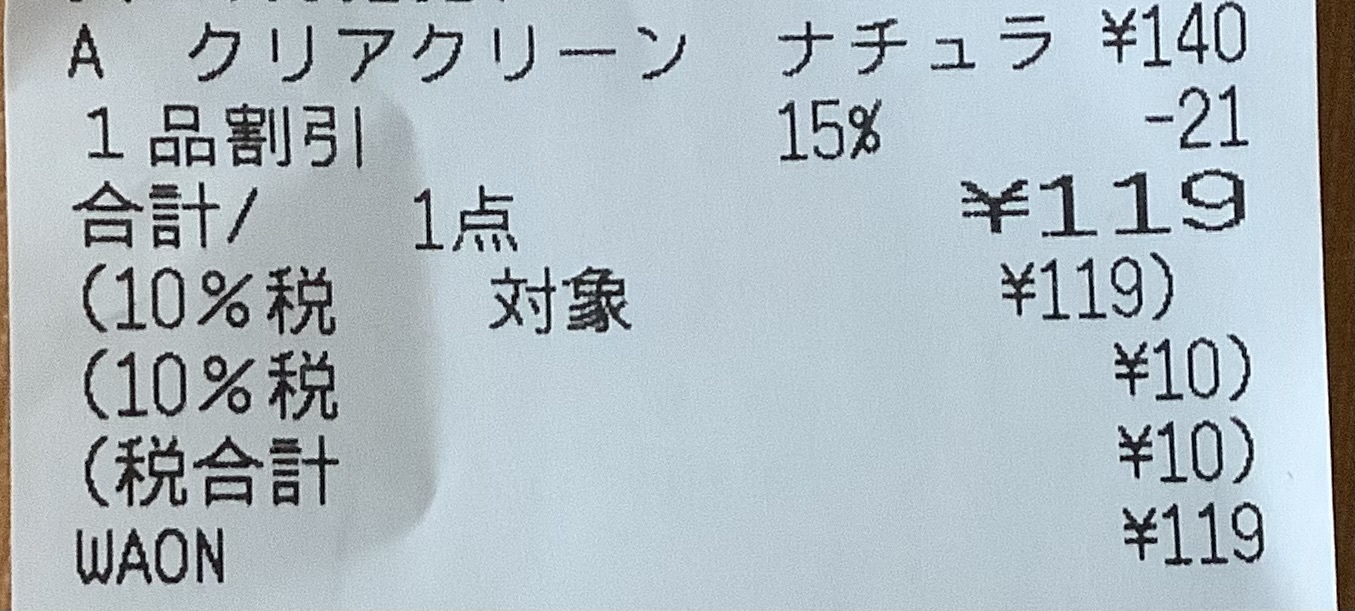 A クリアクリーン ナチュラ ¥140
1品割引 15% -21
合計/ 1点 ¥119
(10%税 対象 ¥119)
(10%税 ¥10)
(税合計 ¥10)
WAON ¥119